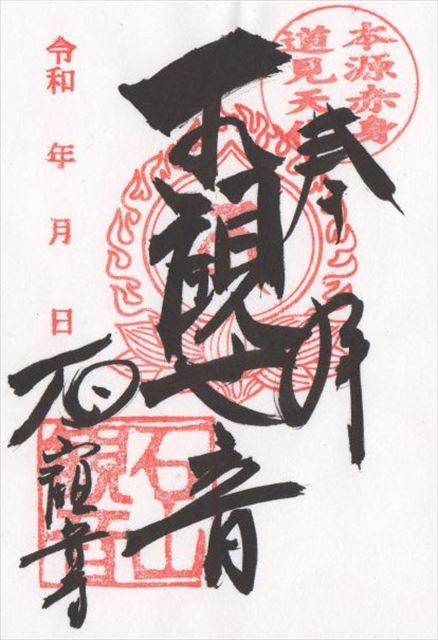 本源赤身
道見天
奉拝
観世音
石山観音
令和 年 月 日
石山観音寺